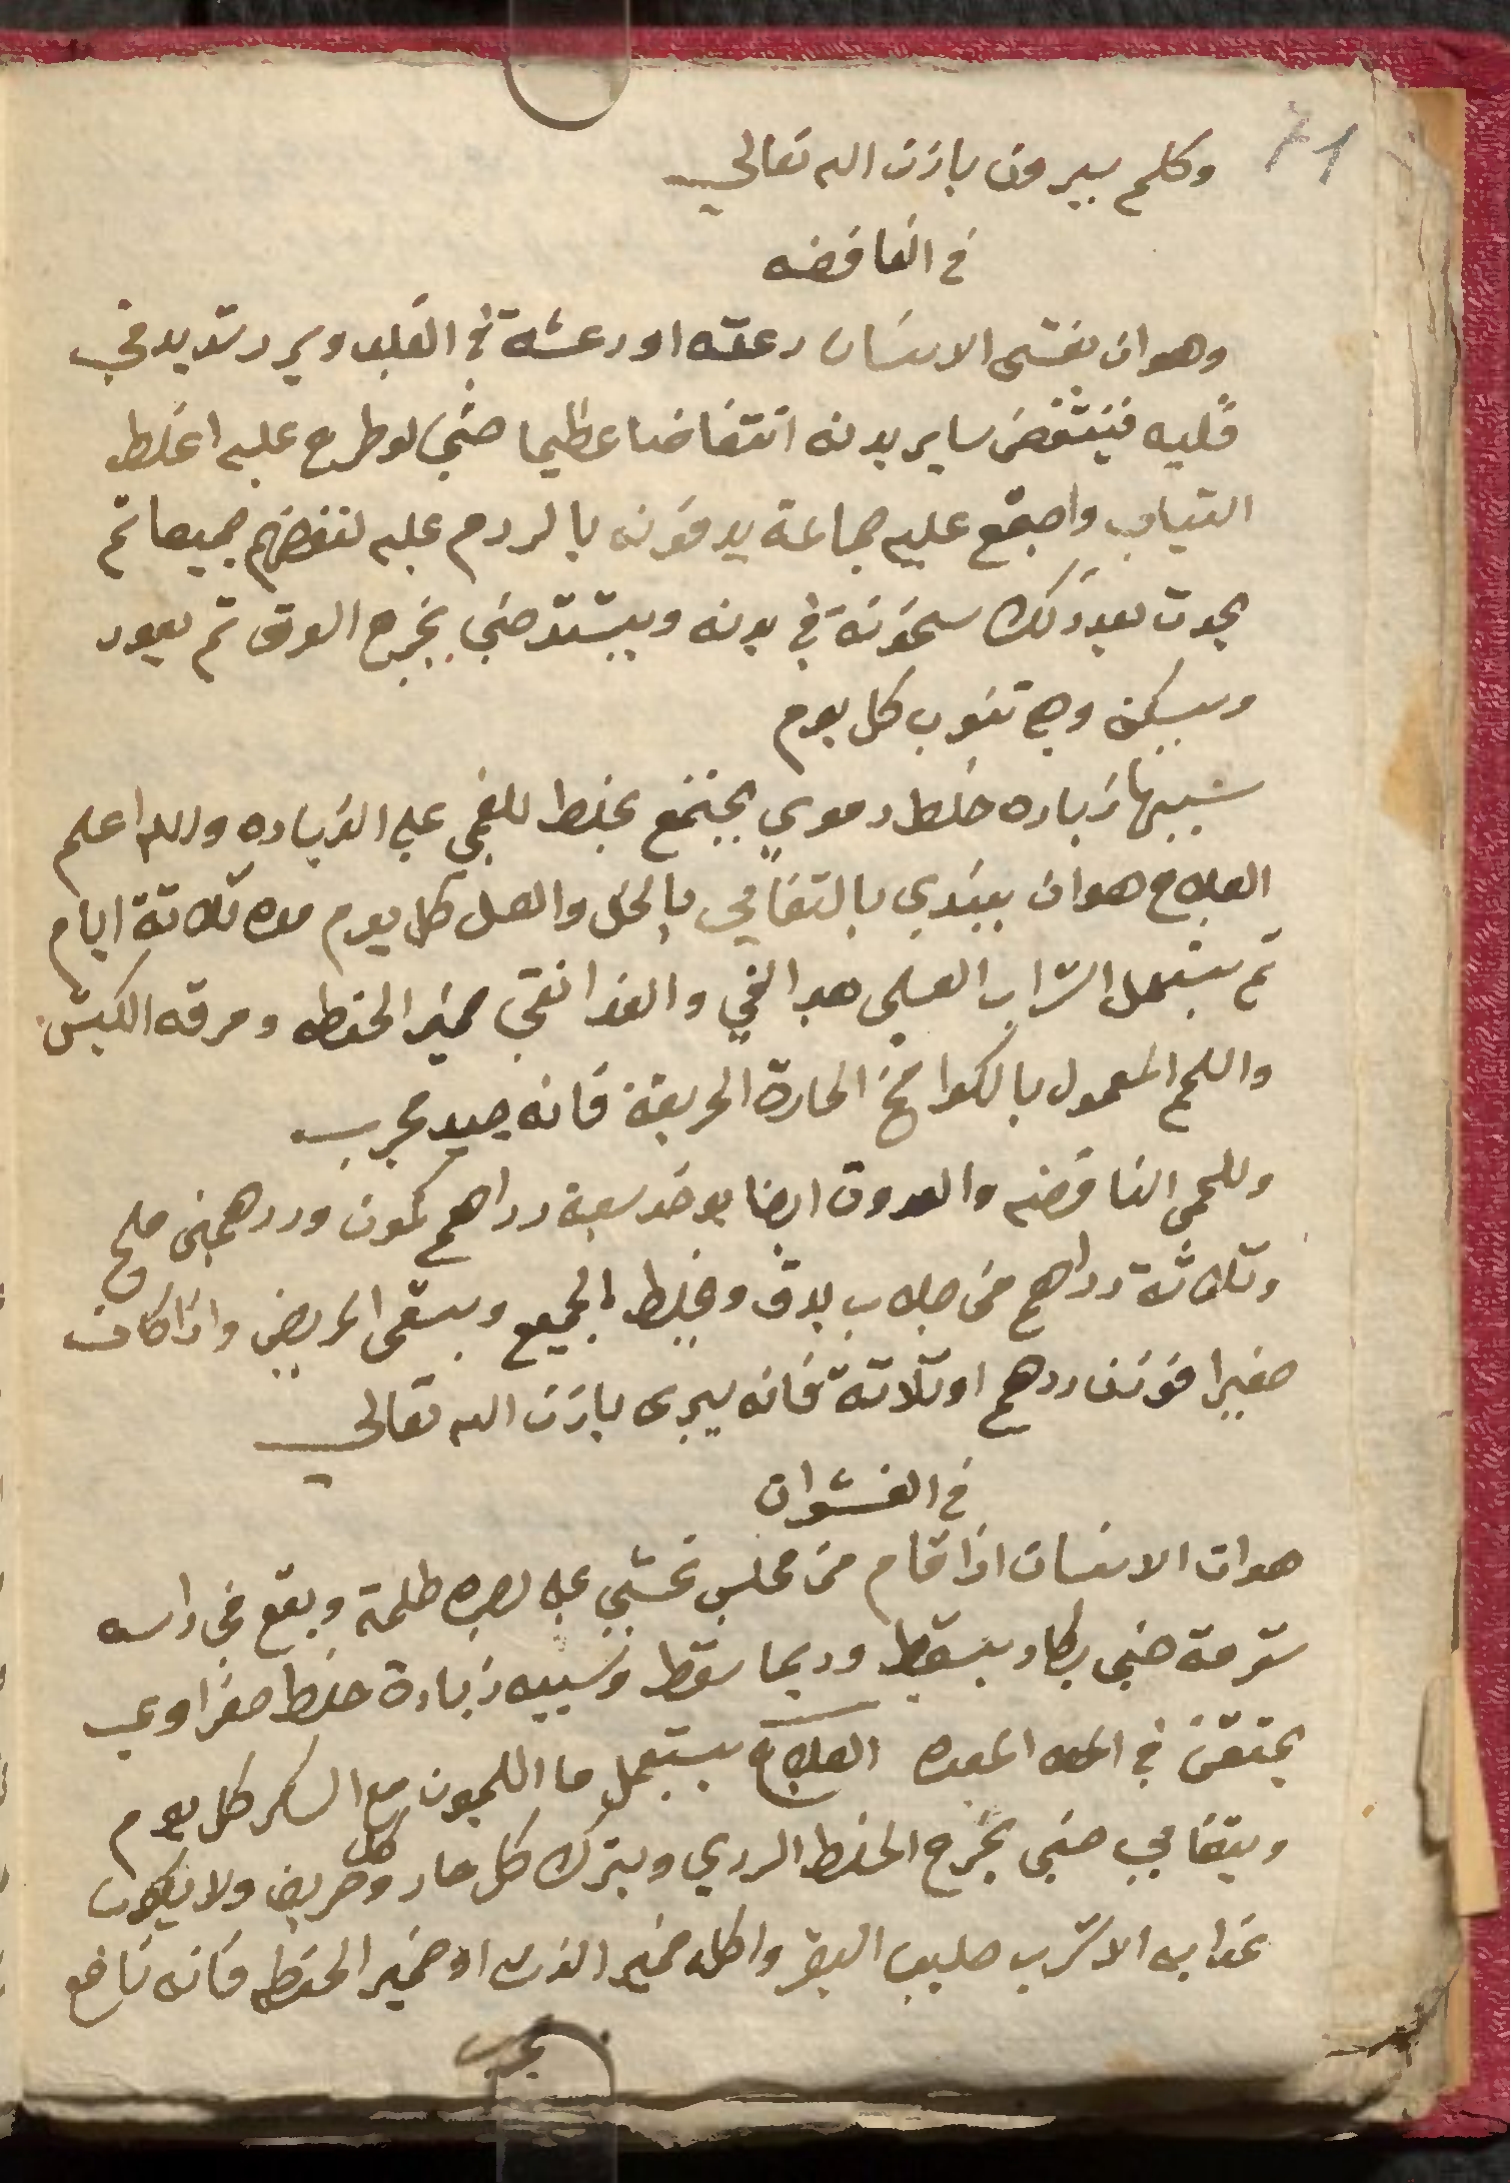 71
وكلهم يبرون باذن الله تعالى
في النافضه
وهو ان يغشى الانسان رعده او رعشة في القلب وبرد شديد في
قلبه فينتفض ساير بدنه انتفاضا عظيما حتى لو طرح عليه اغلط
التياب واجتمع عليه جماعة يدفونه بالردم عليه لنفضهم جميعا تم
يحدت بعد ذلك سخونة في بدنه ويشتد حتى يخرج العرق تم يعود
ويسكن وهي تنوب كل يوم
سببها زياده خلط دموي يجتمع بخلط بلغمي على الزياده والله اعلم
العلاج هو ان يبتدي بالتقايي بالخل والعسل كل يوم مده تلاتة ايام
تم يستعمل الشراب العسلي هدا القي والغدا نقي خمير الحنطه ومرقه الكبش
واللحم المعمول بالكوامخ الحارة الحريفة فانه جيد مجرب
وللحمى النافضه والعروق ايضا يوخد سبعة دراهم كمون ودرهمين ملح
وتلاثة دراهم من جلاب يدق ويخلط الجميع ويسقى المريض واذا كان
صغيرا فوزن درهم او تلاتة فانه يبرى باذن الله تعالى
في الغشوات
هو ان الانسان اذا قام من مجلس تحشي على بصره ظلمة ويقع في راسه
حتى يكاد يسقط وربما سقط وسببه زيادة خلط صفراوي
يحتقن في المعده العلاج يستعمل ما الليمون مع السكر كل يوم
ويتقايي حتى يخرج الخلط الردي ويترك كل حار وكل حريف ولا يكون
غدايه الا شرب حليب البقر واكله خمير الدره او خمير الحنطه فانه نافع
مجرب